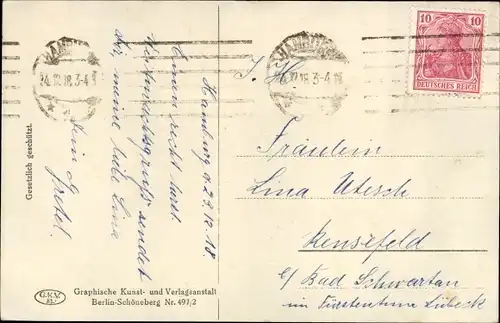 HAMBURG
24.12.18. 3-4 N
Hamburg d. 23.12.18.
Einen recht herzl.
Weihnachtsgruß sendet
dir, meine liebe Lina
Dein Gretel.
Gesetzlich geschützt.
G.K.V.
Bln.
Graphische Kunst- und Verlagsanstalt
Berlin-Schöneberg Nr. 491/2
HAMBURG
12.18. 3-4 N
10 10
DEUTSCHES REICH
Fräulein
Lina Utesch
Rensefeld
b/ Bad Schwartau
im Fürstentum Lübeck